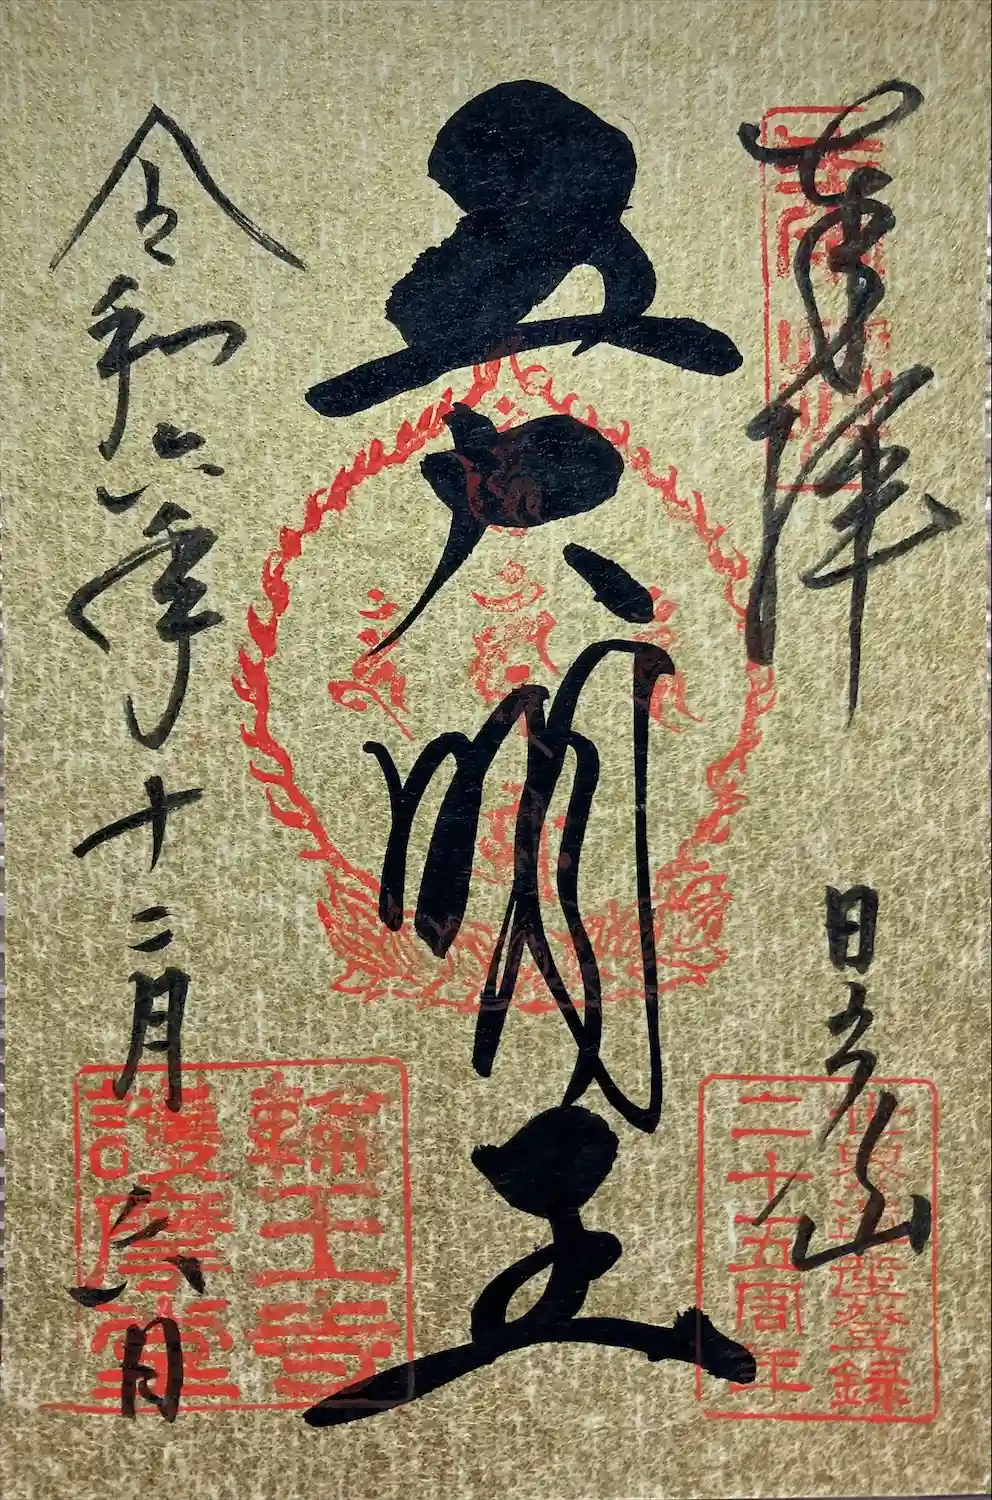 奉拝
日光山
五大明王
令和六年十二月六日
世界遺産登録
二十五周年
輪王寺
護摩堂